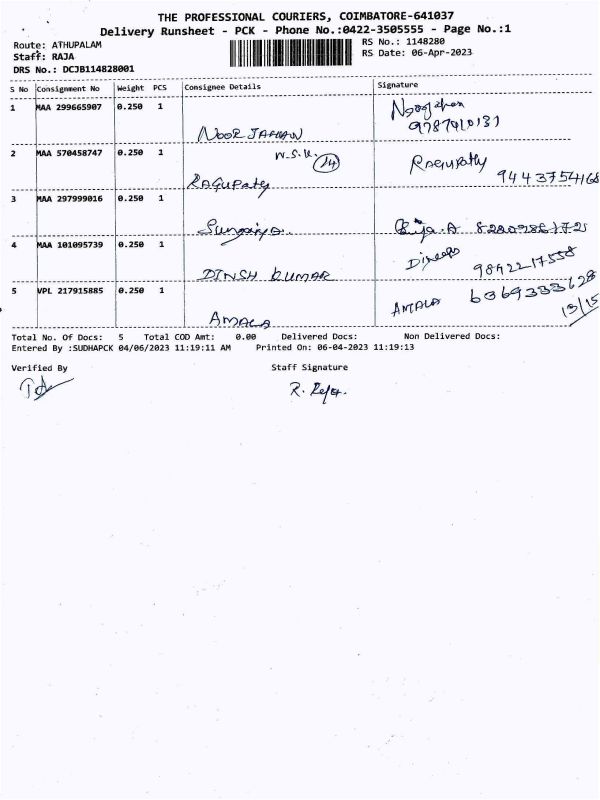 THE PROFESSIONAL COURIERS, COIMBATORE-641037
Delivery Runsheet - PCK - Phone No.:0422-3505555 - Page No.:1
Route: ATHUPALAM
RS No.: 1148280
Staff: RAJA
RS Date: 06-Apr-2023
DRS No.: DCJB114828001
S No Consignment No Weight PCS Consignee Details Signature
1 MAA 299665907 0.250 1 Noorjahan
9787410131
NOOR JAHAN
2 MAA 570458747 0.250 1 N.S.K. 14 Ragupathy
RAGUPATHY 9443754168
3 MAA 297999016 0.250 1
4 MAA 101095739 0.250 1
DINSH KUMAR 9842217558
5 VPL 217915885 0.250 1 AMALA 6369333628
AMALA 13/15
Total No. Of Docs: 5 Total COD Amt: 0.00 Delivered Docs: Non Delivered Docs:
Entered By :SUDHAPCK 04/06/2023 11:19:11 AM Printed On: 06-04-2023 11:19:13
Verified By Staff Signature
R. Raja.